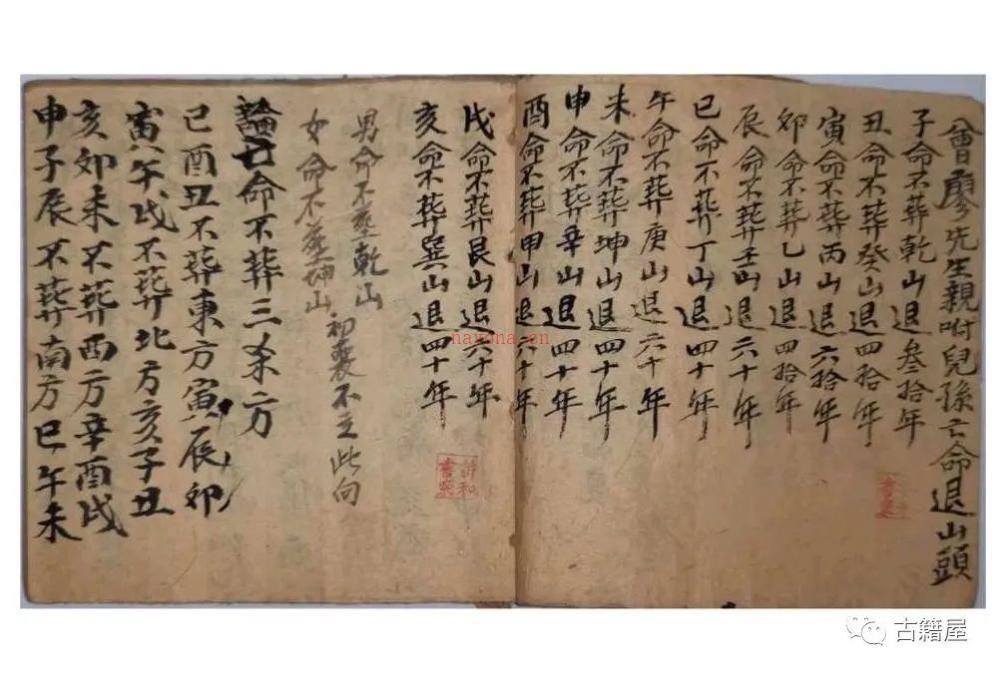 曾廖先生親咐兒孫亡命退山頭
子命不葬乾山退叁拾年
丑命不葬癸山退四拾年
寅命不葬丙山退六拾年
卯命不葬乙山退四拾年
辰命不葬壬山退六十年
巳命不葬丁山退四十年
午命不葬庚山退六十年
未命不葬坤山退四十年
申命不葬辛山退四十年
酉命不葬甲山退六十年
戌命不葬艮山退六十年
亥命不葬巽山退四十年
男命不葬乾山
女命不葬坤山
初喪不立此向
論亡命不葬三杀方
巳酉丑不葬東方寅辰卯
寅午戌不葬北方亥子丑
亥卯未不葬西方辛酉戌
申子辰不葬南方巳午未
nayona.cn
古籍屋